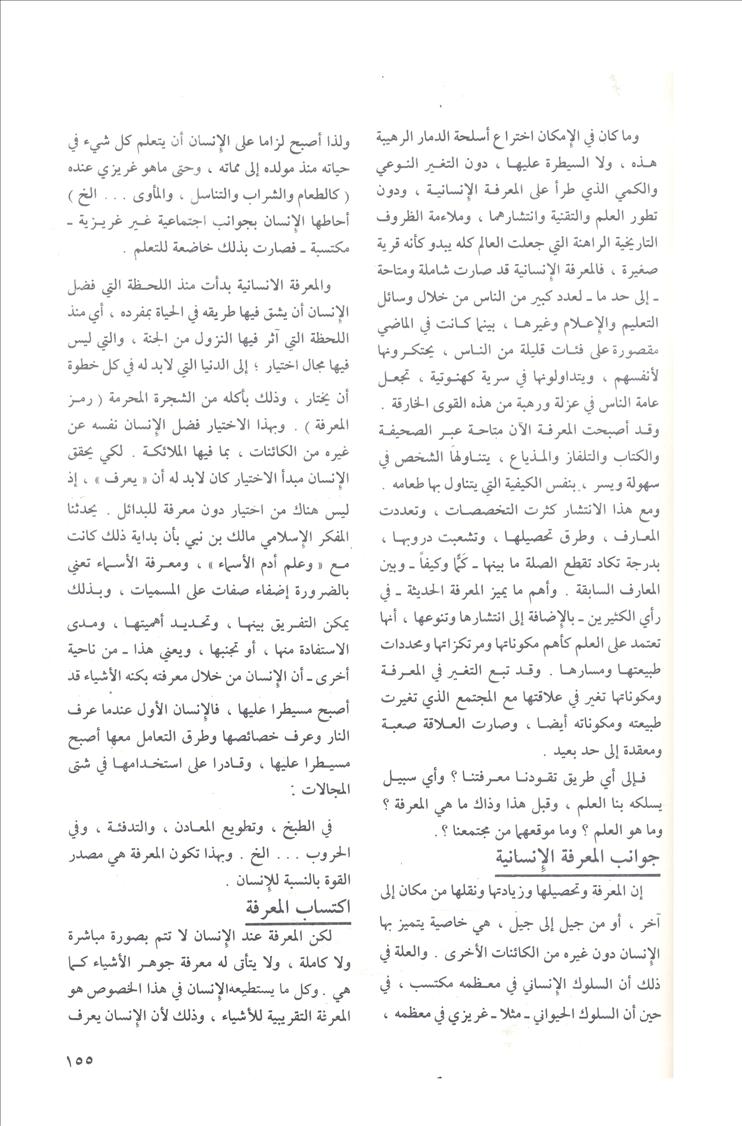 وما كان في الإمكان اختراع أسلحة الدمار الرهيبة
هذه ، ولا السيطرة عليها ، دون التغير النوعي
والكمي الذي طرأ على المعرفة الإنسانية ، ودون
تطور العلم والتقنية وانتشارهما ، وملاءمة الظروف
التاريخية الراهنة التي جعلت العالم كله يبدو كأنه قرية
صغيرة ، فالمعرفة الإنسانية قد صارت شاملة ومتاحة
ـ إلى حد ما ـ لعدد كبير من الناس من خلال وسائل
التعليم والإعلام وغيرها ، بينما كانت في الماضي
مقصورة على فئات قليلة من الناس ، يحتكرونها
لأنفسهم ، ويتداولونها في سرية كهنوتية ، تجعل
عامة الناس في عزلة ورهبة من هذه القوى الخارقة .
وقد أصبحت المعرفة الآن متاحة عبر الصحيفة
والكتاب والتلفاز والمذياع ، يتناولها الشخص في
سهولة ويسر ، بنفس الكيفية التي يتناول بها طعامه .
ومع هذا الانتشار كثرت التخصصات ، وتعددت
المعارف ، وطرق تحصيلها ، وتشعبت دروبها ،
بدرجة تكاد تقطع الصلة ما بينها ـ كمًّا وكيفاً ـ وبين
المعارف السابقة . وأهم ما يميز المعرفة الحديثة ـ في
رأي الكثيرين ـ بالإضافة إلى انتشارها وتنوعها ، أنها
تعتمد على العلم كأهم مكوناتها ومرتكزاتها ومحددات
طبيعتها ومسارها . وقد تبع التغير في المعرفة
ومكوناتها تغير في علاقتها مع المجتمع الذي تغيرت
طبيعته ومكوناته أيضا ، وصارت العلاقة صعبة
ومعقدة إلى حد بعيد .
فإلى أي طريق تقودنا معرفتنا ؟ وأي سبيل
يسلكه بنا العلم ، وقبل هذا وذاك ما هي المعرفة ؟
وما هو العلم ؟ وما موقعهما من مجتمعنا ؟.
جوانب المعرفة الإنسانية
إن المعرفة وتحصيلها وزيادتها ونقلها من مكان إلى
آخر ، أو من جيل إلى جيل ، هي خاصية يتميز بها
الإنسان دون غيره من الكائنات الأخرى . والعلة في
ذلك أن السلوك الإنساني في معظمه مكتسب ، في
حين أن السلوك الحيواني ـ مثلا ـ غريزي في معظمه ،
ولذا أصبح لزاما على الإنسان أن يتعلم كل شيء في
حياته منذ مولده إلى مماته ، وحتى ماهو غريزي عنده
( كالطعام والشراب والتناسل ، والمأوى . . . الخ )
أحاطها الإنسان بجوانب اجتماعية غير غريزية ـ
مكتسبة ـ فصارت بذلك خاضعة للتعلم .
والمعرفة الانسانية بدأت منذ اللحظة التي فضل
الإنسان أن يشق فيها طريقه في الحياة بمفرده ، أي منذ
اللحظة التي آثر فيها النزول من الجنة ، والتي ليس
فيها مجال اختيار ؛ إلى الدنيا التي لابد له في كل خطوة
أن يختار ، وذلك بأكله من الشجرة المحرمة ( رمز
المعرفة ) . وبهذا الاختيار فضل الإنسان نفسه عن
غيره من الكائنات ، بما فيها الملائكة . لكي يحقق
الإنسان مبدأ الاختيار كان لابد له أن « يعرف » ، إذ
ليس هناك من اختيار دون معرفة للبدائل . يحدثنا
المفكر الإسلامي مالك بن نبي بأن بداية ذلك كانت
مع « وعلم أدم الأسماء » ، ومعرفة الأسماء تعني
بالضرورة إضفاء صفات على المسميات ، وبذلك
يمكن التفريق بينها ، وتحديد أهميتها ، ومدى
الاستفادة منها ، أو تجنبها ، ويعني هذا ـ من ناحية
أخرى ـ أن الإنسان من خلال معرفته بكنه الأشياء قد
أصبح مسيطرا عليها ، فالإنسان الأول عندما عرف
النار وعرف خصائصها وطرق التعامل معها أصبح
مسيطرا عليها ، وقادرا على استخدامها في شتى
المجالات :
في الطبخ ، وتطويع المعادن ، والتدفئة ، وفي
الحروب . . . الخ . وبهذا تكون المعرفة هي مصدر
القوة بالنسبة للإنسان .
اكتساب المعرفة
لكن المعرفة عند الإنسان لا تتم بصورة مباشرة
ولا كاملة ، ولا يتأتى له معرفة جوهر الأشياء كما
هي . وكل ما يستطيعه الإنسان في هذا الخصوص هو
المعرفة التقريبية للأشياء ، وذلك لأن الإنسان يعرف
١٥٥